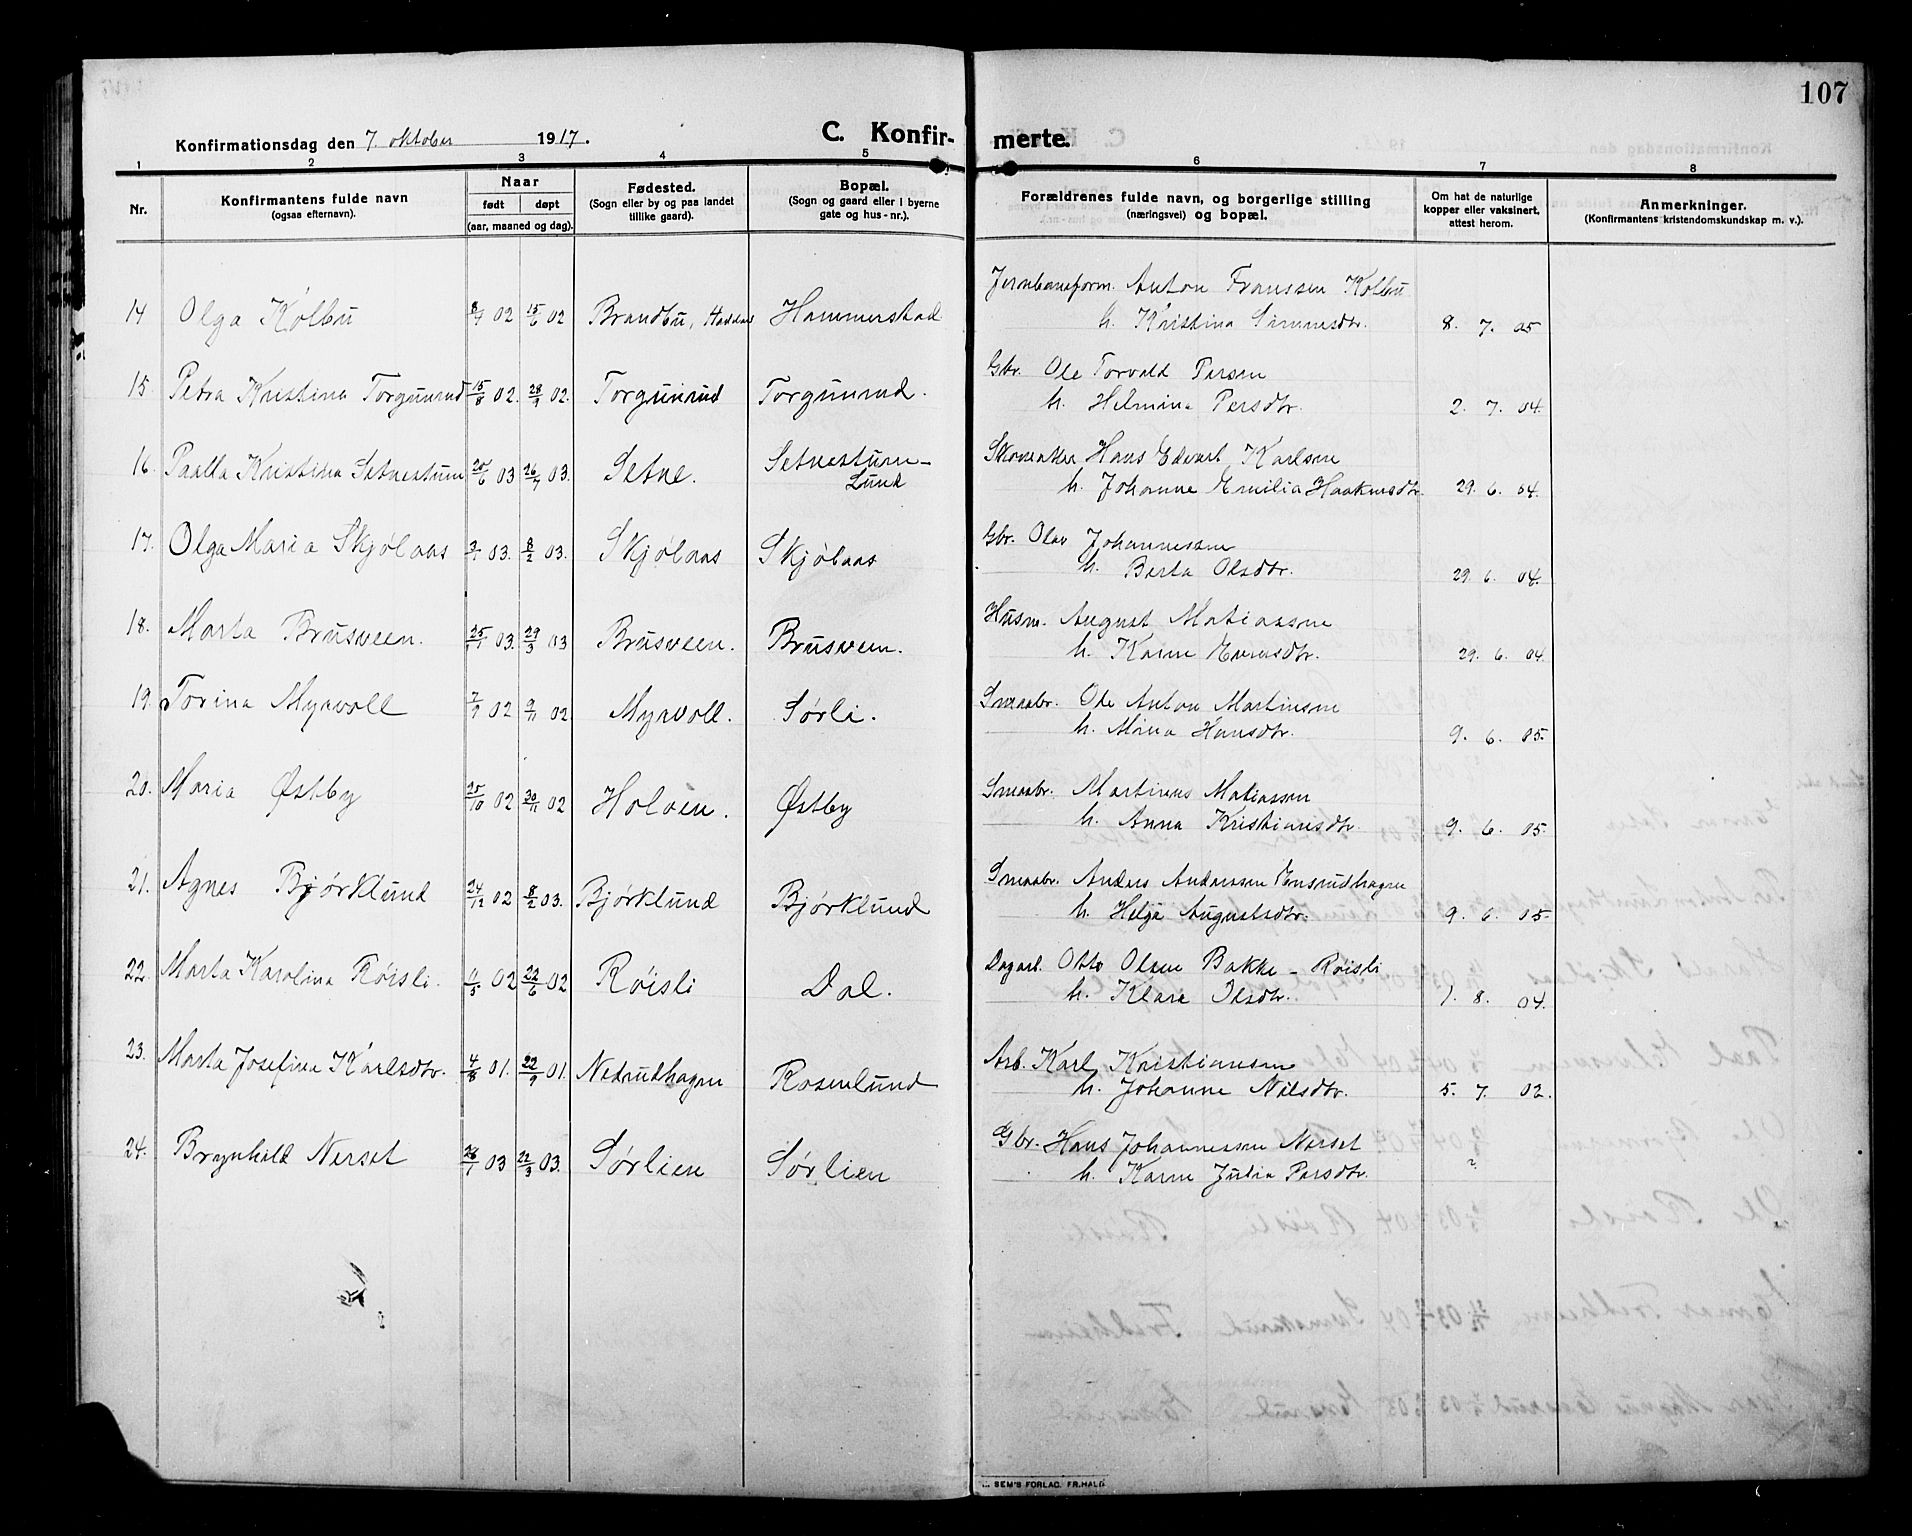 107
Konfirmationsdag den 7. oktober 1917. C. Konfir- merte.
1 2 3 4 5 6 7 8
Nr. Konfirmantens fulde navn (ogsaa efternavn). Naar født døpt (aar, maaned og dag). Fødested. (Sogn eller by og paa landet tillike gaard). Bopæl. (Sogn og gaard eller i byerne gate og hus-nr.). Forældrenes fulde navn, og borgerlige stilling (næringsvei) og bopæl. Om hat de naturlige kopper eller vaksinert, attest herom. Anmerkninger. (Konfirmantens kristendomskundskap m. v.).
Jernbaneform. Anton Franssen Kolbu
14 Olga Kolbu 8/4 02 15/6 02 Brandbu, Hammerstad h. Kristina Simensdtr. 8. 7. 05
Gbr. Ole Torvald Persen
15. Petra Kristina Torgunrud 15/8 02. 28/9 02. Torgunrud Torgunrud. h. Helmina Persdtr. 2. 7. 04.
16. Paalla Kristina Setnestuen 20/6 03 26/7 03. Setne. Setnestuen- Lund Hans Edvart Karlsen
h. Johanne Emilia Haakensdtr. 29. 6. 04.
Gbr. Olav Johannessen
17. Olga Maria Skjølaas 3/1 03. 8/2 03. Skjølaas Skjølaas h. Berta Olsdtr. 29. 6. 04.
Husm. August Matiassen
18. Marta Brusveen. 25/1 03. 29/3 03 Brusveen. Brusveen. h. Karen Evensdtr. 29. 6. 04.
Smaabr. Ole Anton Martinsen
19. Torina Myrvoll 7/9 02 9/11 02 Myrvoll. Sørli. h. Mina Hansdtr. 9. 6. 05.
Smaabr. Martinus Matiassen
20. Maria Østby 25/10 02 30/11 02 Holven. Østby h. Anna Kristiansdtr. 9. 6. 05.
Smaabr. Anders Anderssen Ensrudhagen
21. Agnes Bjørklund 24/12 02 8/2 03. Bjørklund Bjørklund h. Helga Augustsdtr. 9. 6. 05.
Dagarb. Otto Olsen Bakke - Røisli
22. Marta Karolina Røisli. 11/5 02 22/6 02 Røisli Dal. h. Klara Olsdtr. 1. 8. 04.
Arb. Karl Kristiansen
23. Marta Josefina Karlsdtr. 4/8 01. 22/9 01. Nedrudhagen Rosenlund h. Johanne Nilsdtr. 5. 7. 02.
Gbr. Hans Johannessen Nerset
24. Brynhild Nerset 26/1 03 22/3 03. Sørlien Sørlien h. Karen Julia Persdtr. ?
SEM'S FORLAG. FR.HALD